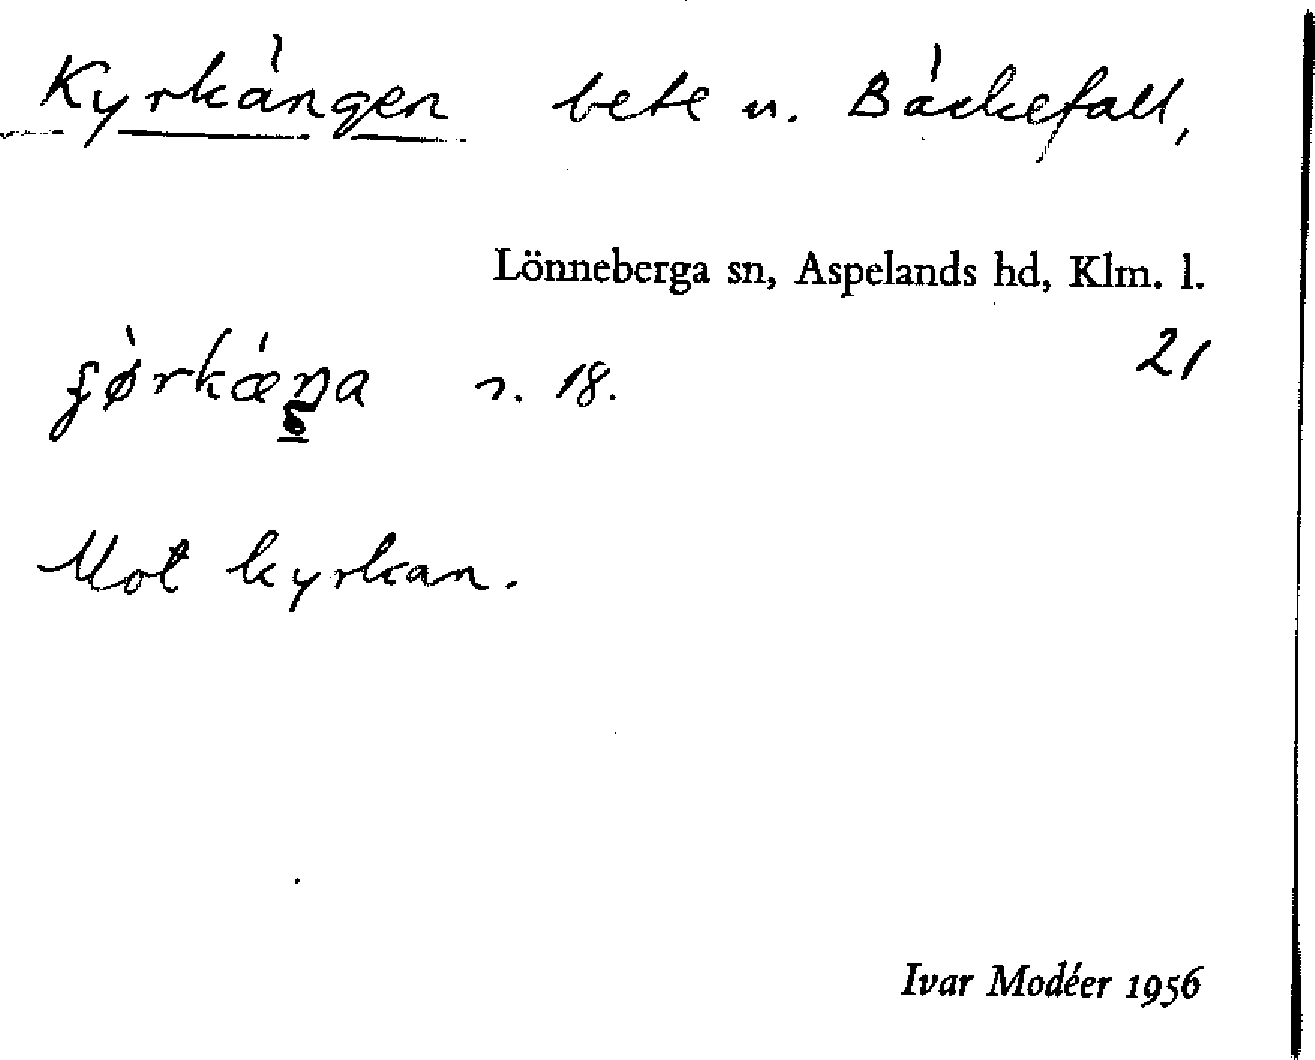 Kyrkängen bete u. Bäckefall,
Lönneberga sn, Aspelands hd, Klm. l.
21
n. 18.
Mot kyrkan.
Ivar Modéer 1956